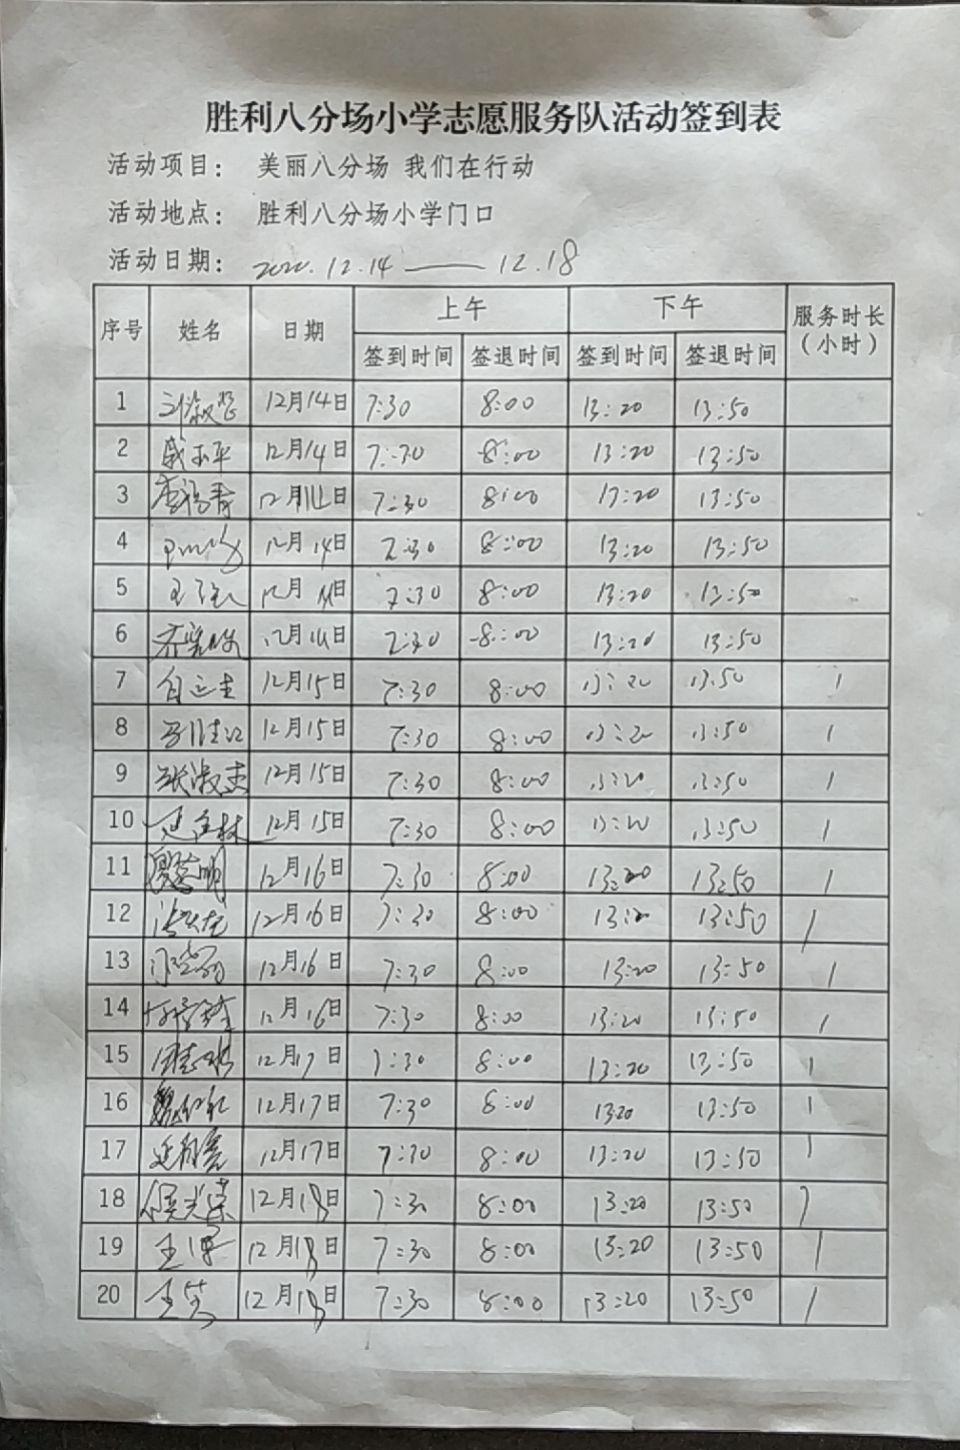 胜利八分场小学志愿服务队活动签到表
活动项目： 美丽八分场 我们在行动
活动地点： 胜利八分场小学门口
活动日期： 2020.12.14——12.18
序号 姓名 日期 上午 下午 服务时长（小时）
签到时间 签退时间 签到时间 签退时间
1 12月14日 7:30 8:00 13:20 13:50
2 12月14日 7:30 8:00 13:20 13:50
3 12月14日 7:30 8:00 13:20 13:50
4 12月14日 7:30 8:00 13:20 13:50
5 12月14日 7:30 8:00 13:20 13:50
6 12月14日 7:30 8:00 13:20 13:50
7 12月15日 7:30 8:00 13:20 13:50 1
8 12月15日 7:30 8:00 13:20 13:50 1
9 张淑杰 12月15日 7:30 8:00 13:20 13:50 1
10 12月15日 7:30 8:00 13:20 13:50 1
11 12月16日 7:30 8:00 13:20 13:50 1
12 12月16日 7:30 8:00 13:20 13:50 1
13 12月16日 7:30 8:00 13:20 13:50 1
14 12月16日 7:30 8:00 13:20 13:50 1
15 12月17日 7:30 8:00 13:20 13:50 1
16 12月17日 7:30 8:00 13:20 13:50 1
17 12月17日 7:30 8:00 13:20 13:50 1
18 12月18日 7:30 8:00 13:20 13:50 1
19 12月18日 7:30 8:00 13:20 13:50 1
20 12月18日 7:30 8:00 13:20 13:50 1